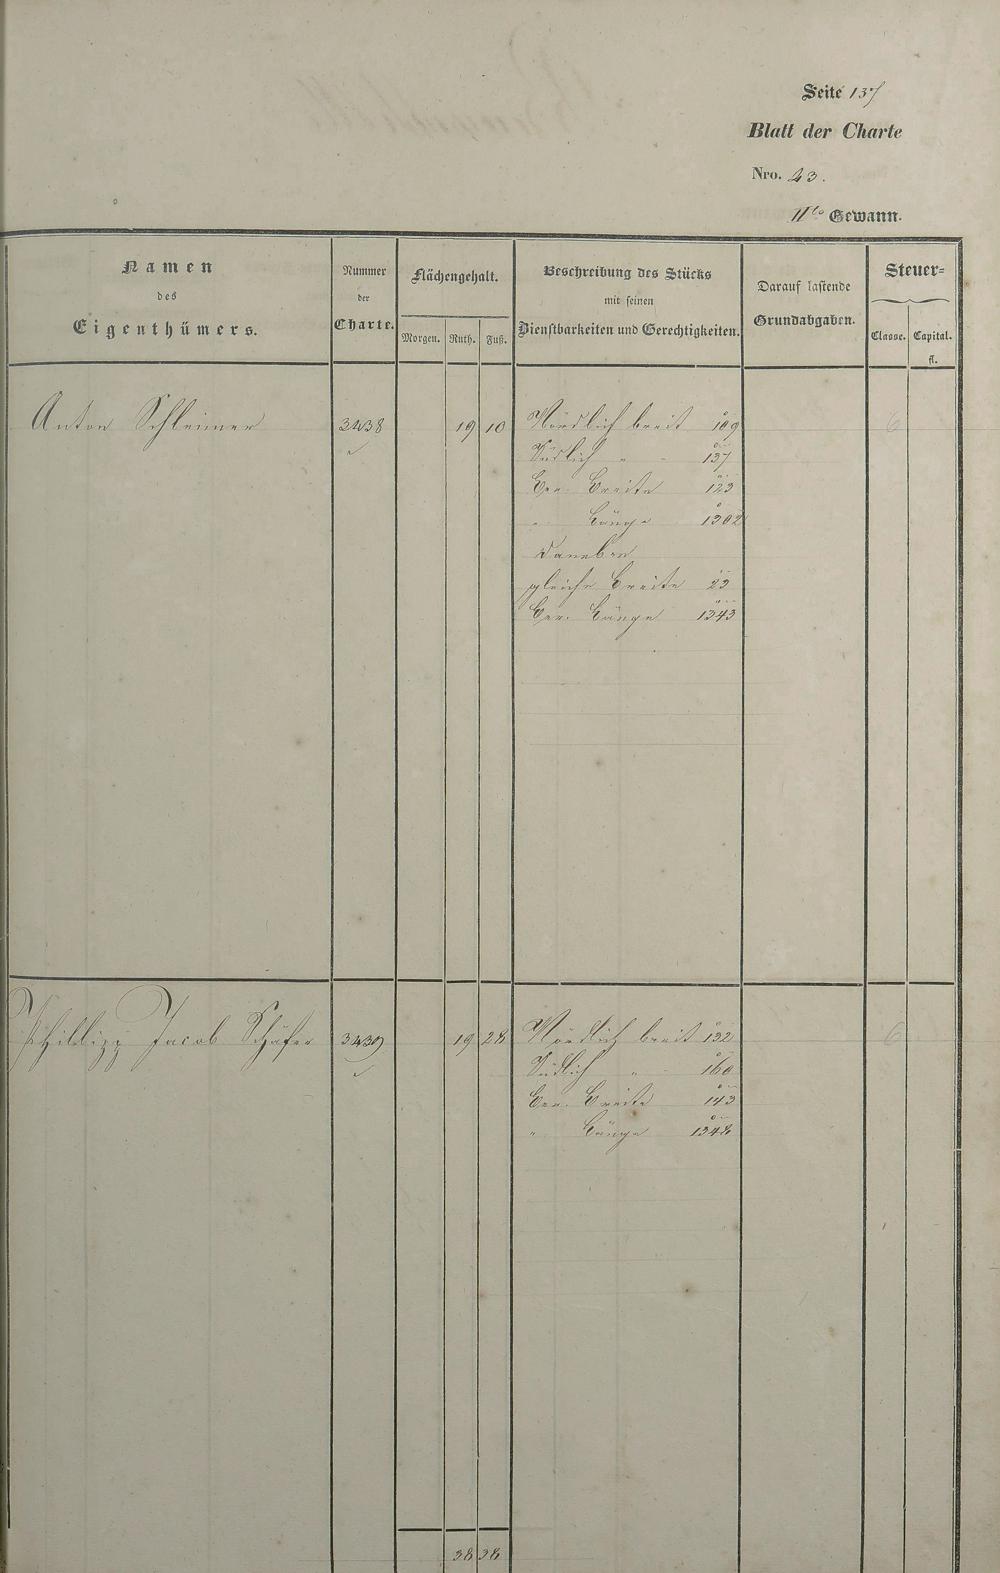 Seite 137
Blatt der Charte
Nro. 23.
11te Gewann.
Namen des Eigenthümers.
Nummer der Charte.
Flächengehalt.
Morgen. Ruth. Fuß.
Beschreibung des Stücks mit seinen Dienstbarkeiten und Gerechtigkeiten.
Darauf lastende Grundabgaben.
Steuer=
Classe. Capital. fl.
Anton Schleimer 3438 19 10 Nördlich breit 109 6
Südlich " - 137
Ger. Breite 123
" Länge 1302
Daneben
gleiche Breite 23
Ger. Länge 1343
Philipp Jacob Schäfer 3439 19 28 Nördlich breit 132 6
Südlich " - 160
Ger. Breite 143
" Länge 1348
38 38